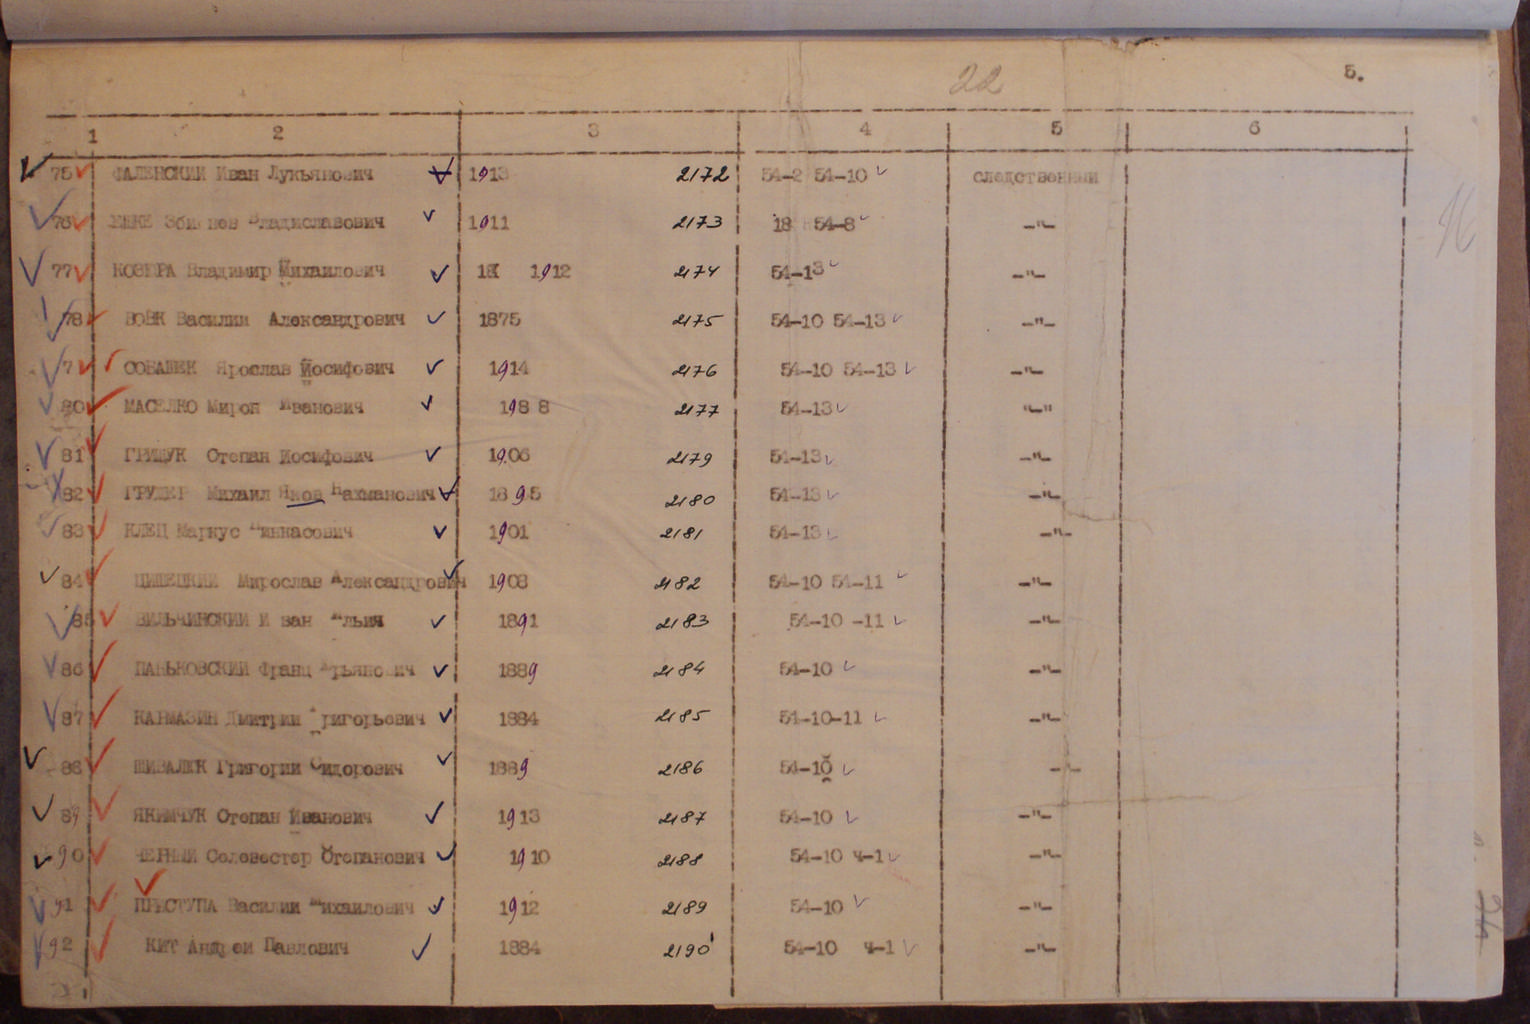 22 5.
1 2 3 4 5 6
75 ФАЛЕНСКИЙ Иван Лукьянович 1913 2172 54-2 54-10 следственный
76 Владиславович 1911 2173 18 54-8 -"-
77 Владимир Михаилович 18 1912 2174 54-13 -"-
78 ВОВК Василий Александрович 1875 2175 54-10 54-13 -"-
7 Ярослав Иосифович 1914 2176 54-10 54-13 -"-
80 МАСЕЛКО Мирон Иванович 1988 2177 54-13 "-"
81 ГРИЩУК Степан Иосифович 1906 2179 54-13 -"-
82 Михаил Яков Нахманович 1895 2180 54-13 -"-
83 КЛЕЦ Маркус Пинкасович 1901 2181 54-13 -"-
84 Мирослав Александрович 1908 2182 54-10 54-11 -"-
85 ВИЛЬЧИНСКИЙ И ван Илья 1891 2183 54-10 -11 -"-
86 ПАНЬКОВСКИЙ Франц 1889 2184 54-10 -"-
87 КАРМАЗИН Дмитрий Григорьевич 1884 2185 54-10-11 -"-
88 Григорий Сидорович 1889 2186 54-10 - -
89 ЯКИМЧУК Степан Иванович 1913 2187 54-10 -"-
90 ЧЕРНЫЙ Селевестер Степанович 1910 2188 54-10 ч-1 -"-
91 ПРЕСТУПА Василий Михаилович 1912 2189 54-10 -"-
92 КИТ Андрей Павлович 1884 2190 54-10 ч-1 -"-